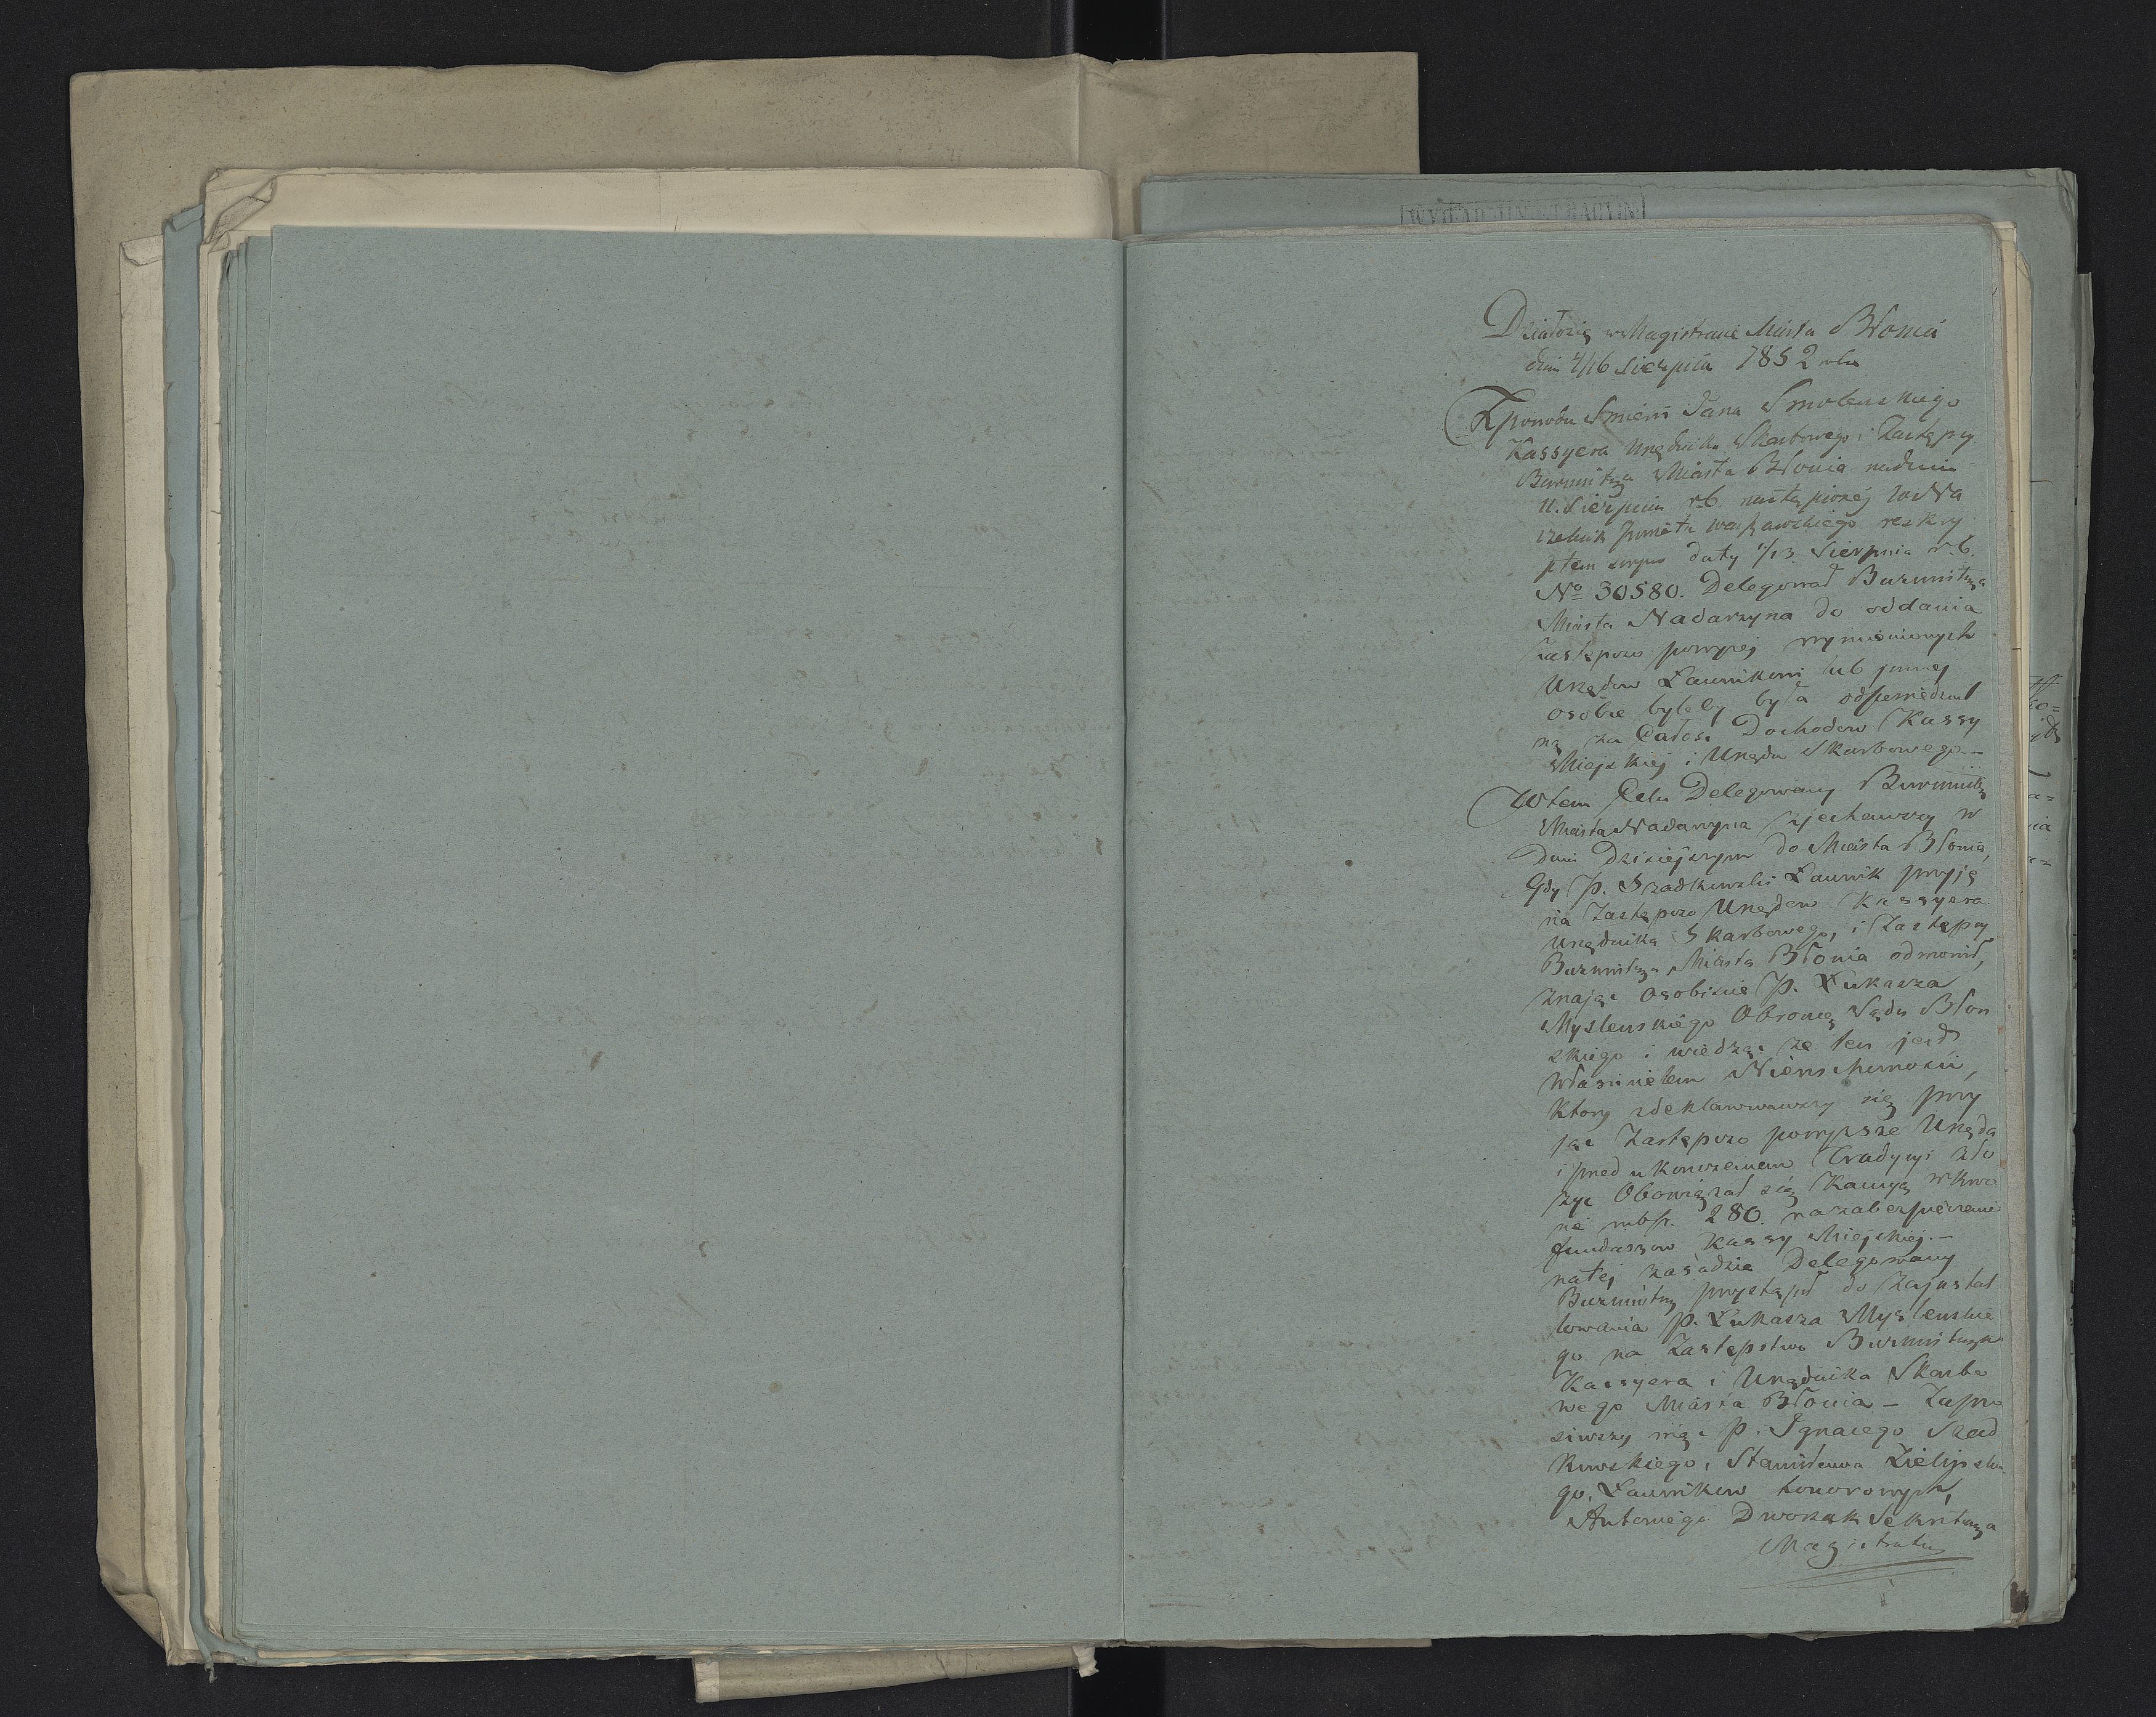 Działo się w Magistracie Miasta Błonia
dnia 4/16 Sierpnia 1852 roku
Z powodu Smierci Jana Smolenskiego
Kassyera Urzędnika Skarbowego i Zastępcy
Burmistrza Miasta Błonia na dniu
11. Sierpnia r.b. nastąpionéj W Na
czelnik Powiatu Warszawskiego reskry
ptem swym daty 1/13. Sierpnia r.b.
No 30580. Delegował Burmistrza
Miasta Nadarzyna do oddania
zastępczo powyżej wymienionych
Urzędow Ławnikowi lub innej
osobie byleby była odpowiedzial
ną za Całość Dochodow Kassy
Miejskiej i Urzędu Skarbowego. —
W tem Celu Delegowany Burmistrz
Miasta Nadarzyna zjechawszy w
Dniu Dzisiejszym do Miasta Błonia,
Gdy P. Szadkowski Ławnik przyję
cia Zastępczo Urzędow Kassyera
Urzędnika Skarbowego, i Zastępcy
Burmistrza Miasta Błonia odmowił,
znając osobiscie P. Łukasza
Myslenskiego Obroncę Sądu Błon
skiego i wiedząc że ten jest
Włascicielem Nieruchomosci,
Ktory zdeklarowawszy się przy
jąc Zastępczo powyzsze Urzęda
i przed ukonczeniem Tradycyi zło
zyc Obowiązał się Kaucyę w kwo
cie rubsr. 280. na zabezpieczenie
funduszow Kassy Miejskiej. —
na tej zasadzie Delegowany
Burmistrz przystąpił do Zajnstal
lowania P. Łukasza Myslenskie
go na Zastępstwo Burmistrza
Kassyera i Urzędnika Skarbo
wego Miasta Błonia — Zapro
siwszy więc P. Ignacego Szad
kowskiego, Stanisława Zielinskie
go, Ławnikow honorowych,
Antoniego Dworzak Sekretarza
Magistratu